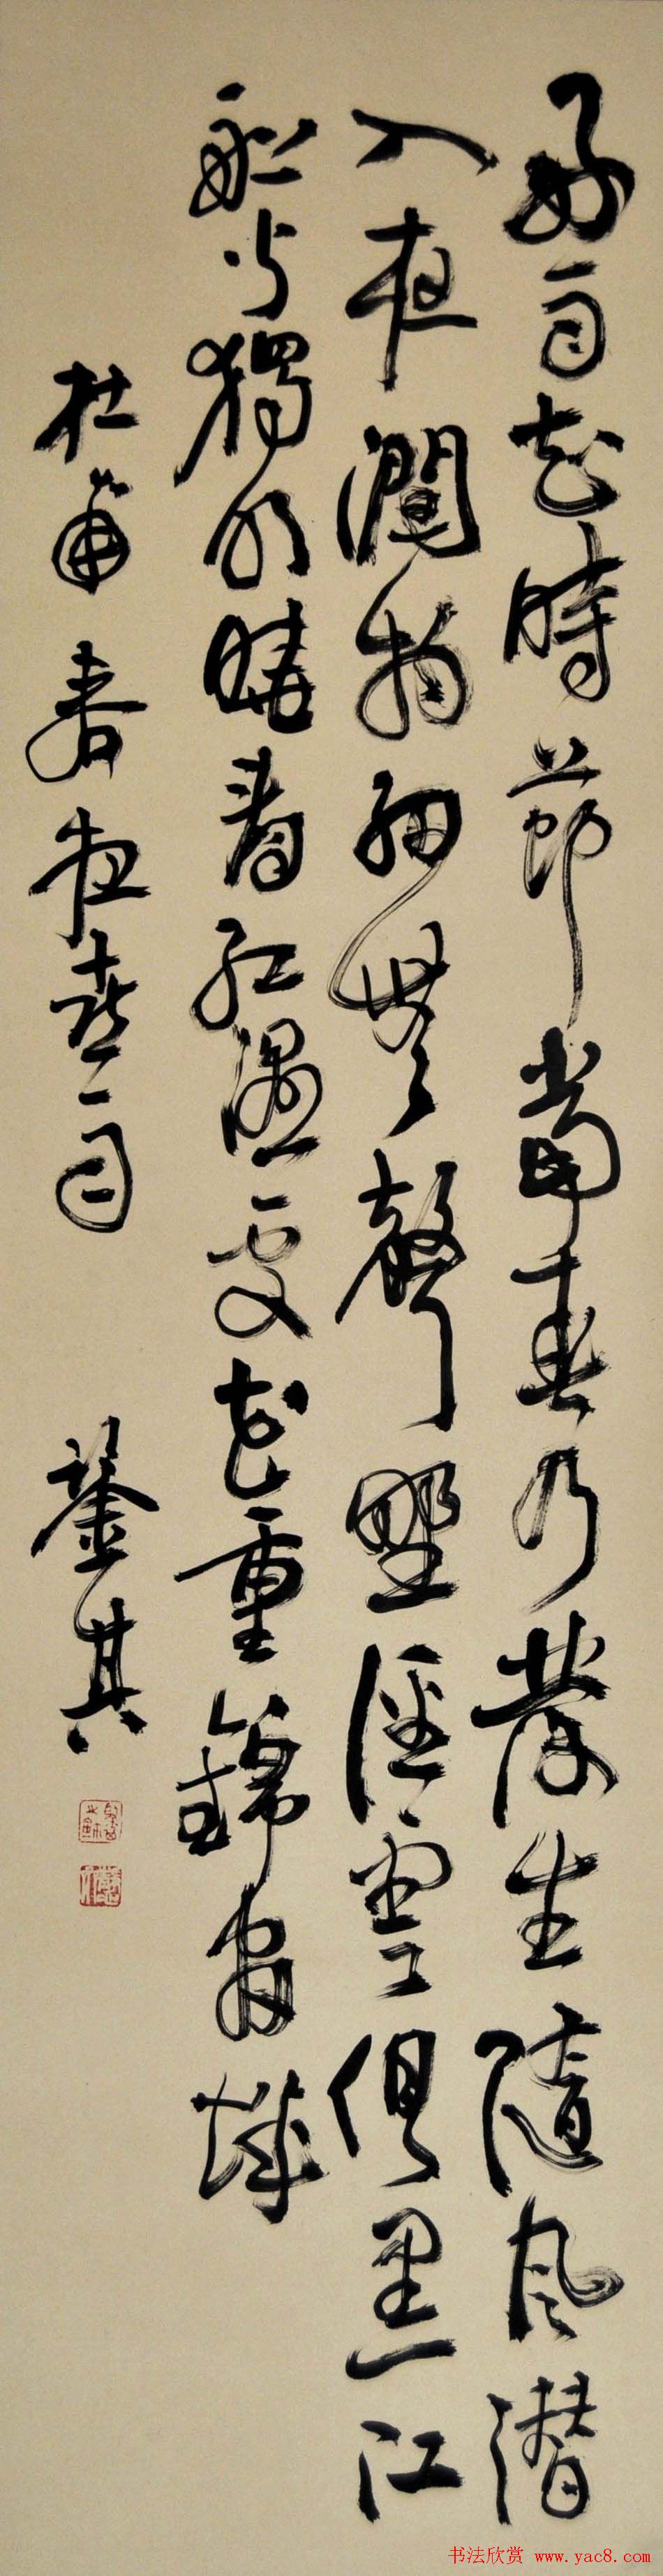 好雨知時節當春乃發生隨風潛
入夜潤物細無聲野徑雲俱黑江
船火獨明曉看紅濕處花重錦官城
杜甫春夜喜雨 其
书法欣赏 www.yac8.com